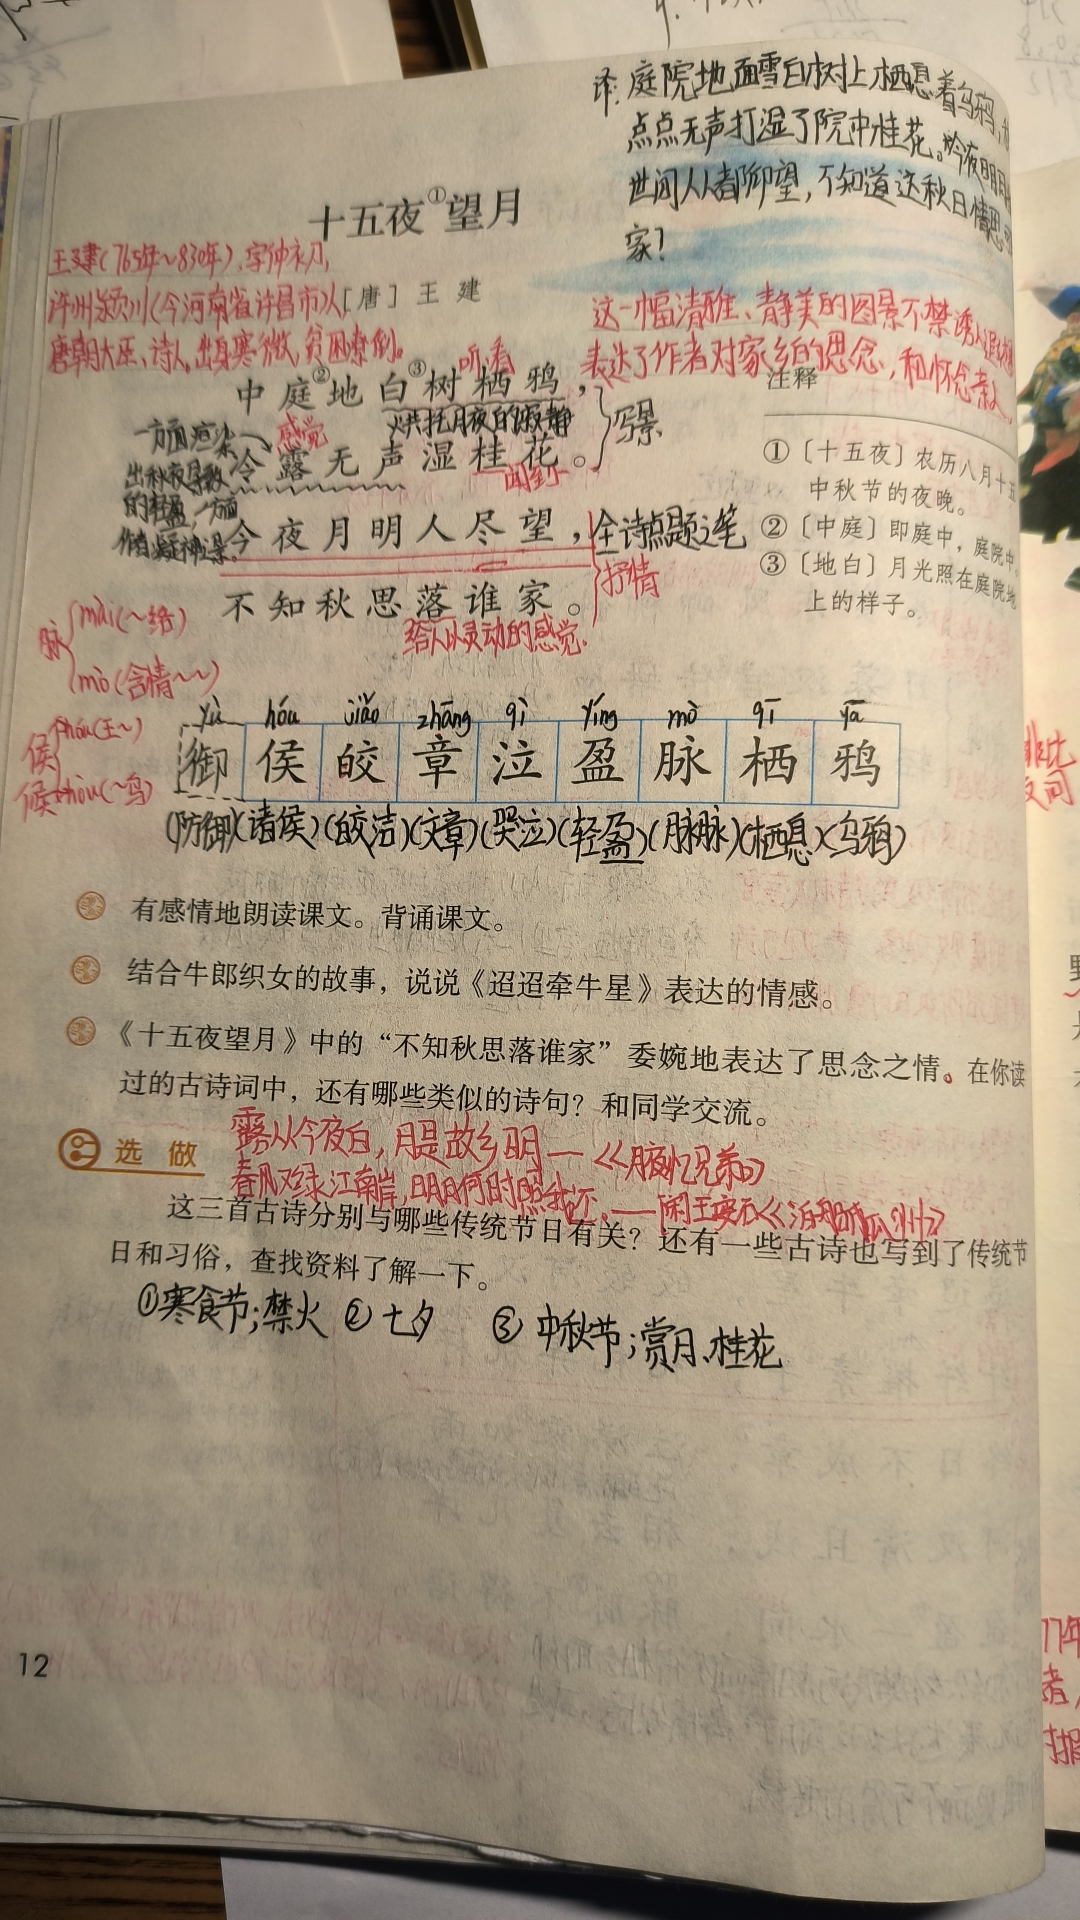 译:庭院地面雪白树上栖息着乌鸦,
点点无声打湿了院中桂花。今夜明月
世间人人都仰望,不知道这秋日情思
家?
十五夜①望月
王建(765年~830年),字仲初,
许州颍川(今河南省许昌市以
[唐] 王 建
唐朝大臣、诗人,出身寒微,贫困潦倒。
这一幅清雅、静美的图景不禁诱人遐想
表达了作者对家乡的思念,和怀念亲人。
听,看
中庭②地白③树栖鸦,
烘托月夜的寂静
写景
一方面渲染
出秋夜导致
的轻盈,一方面
感觉
冷露无声湿桂花。
闻到
今夜月明人尽望,
全诗点题之笔
抒情
不知秋思落谁家。
给人以灵动的感觉.
注释
①〔十五夜〕农历八月十五
中秋节的夜晚。
②〔中庭〕即庭中,庭院中。
③〔地白〕月光照在庭院地
上的样子。
脉
mài(~络)
mò(含情~~)
侯 hóu(王~)
候 hòu(~鸟)
yù hóu jiǎo zhāng qì yíng mò qī yā
御 侯 皎 章 泣 盈 脉 栖 鸦
(防御)(诸侯)(皎洁)(文章)(哭泣)(轻盈)(脉脉)(栖息)(乌鸦)
有感情地朗读课文。背诵课文。
结合牛郎织女的故事,说说《迢迢牵牛星》表达的情感。
《十五夜望月》中的“不知秋思落谁家”委婉地表达了思念之情。在你读
过的古诗词中,还有哪些类似的诗句?和同学交流。
露从今夜白,月是故乡明—《月夜忆舍弟》
选做
春风又绿江南岸,明月何时照我还。——王安石《泊船瓜洲》
这三首古诗分别与哪些传统节日有关?还有一些古诗也写到了传统节
日和习俗,查找资料了解一下。
①寒食节;禁火 ②七夕 ③中秋节;赏月、桂花
12